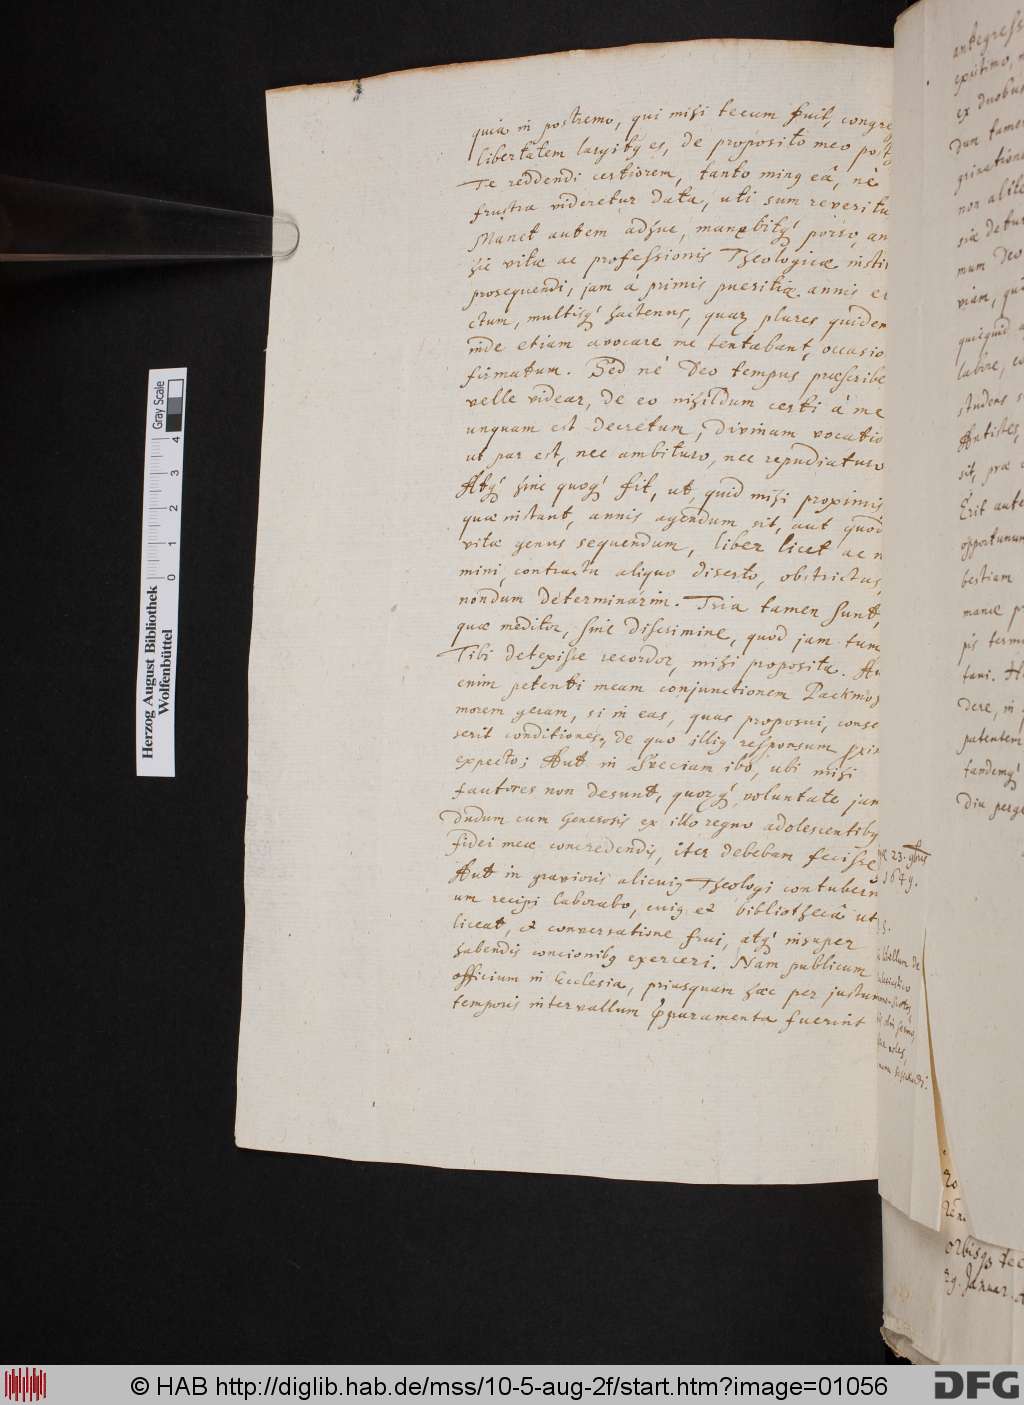 quia in postremo, qui mihi tecum fuit, congre
libertatem largitus es, de proposito meo post
Te reddendi certiorem, tanto minus eâ, nè
frustra videretur data, uti sum reveritu
Manet autem adhuc, manebitq́ porro, an
hic vitæ ac professionis Theologicæ insti
prosequendi, jam à primis pueritiæ annis er
ctum, multisq́ hactenus, quaȝ plures quidem
inde etiam avocare me tentabant, occasio
firmatum. Sed nè Deo tempus præscribe
velle videar, de eo nihildum certi à me
unquam est decretum, divinam vocatio
ut par est, nec ambituro, nec repudiaturo
Atq́ hinc quoq́ fit, ut, quid mihi proximis,
quæ instant, annis agendum sit, aut quod
vitæ genus sequendum, liber licet ac n
mini, contractu aliquo diserto, obstrictus,
nondum determinarim. Tria tamen sunt,
quæ meditor, sine discrimine, quod jam tum
Tibi detexisse recordor, mihi proposita. Au
enim petenti meam conjunctionem Pachmoȝ
morem geram, si in eas, quas proposui, conse
serit conditiones, de quo illius responsum
expecto; Aut in Sveciam ibo, ubi mihi
fautores non desunt, quorq́, voluntate jam
dudum cum Generosis ex illo regno adolescentibus
fidei meæ concredendis, iter debebam fecisse
Aut in gravioris alicujus Theologi contubern
um recipi laborabo, cujus et bibliothecâ uti
liceat, et conversatione frui, atq́ insuper
habendis concionibus exerceri. Nam publicum
officium in Ecclesia, priusquam hæc per justum
temporis intervallum fuerint
23.
1649.
libellum de
antegress
existimo,
ex duobus
Dum tamen
non alite
mum Deo
viam, qui
quicquid
labore,
studens
Antistes,
sit, præ
Erit aute
opportunum
bestiam
tandemq́
Diu perge
29. Januar.
Herzog August Bibliothek
Wolfenbüttel
0 1 2 3 4
Gray Scale
© HAB http://diglib.hab.de/mss/10-5-aug-2f/start.htm?image=01056
DFG